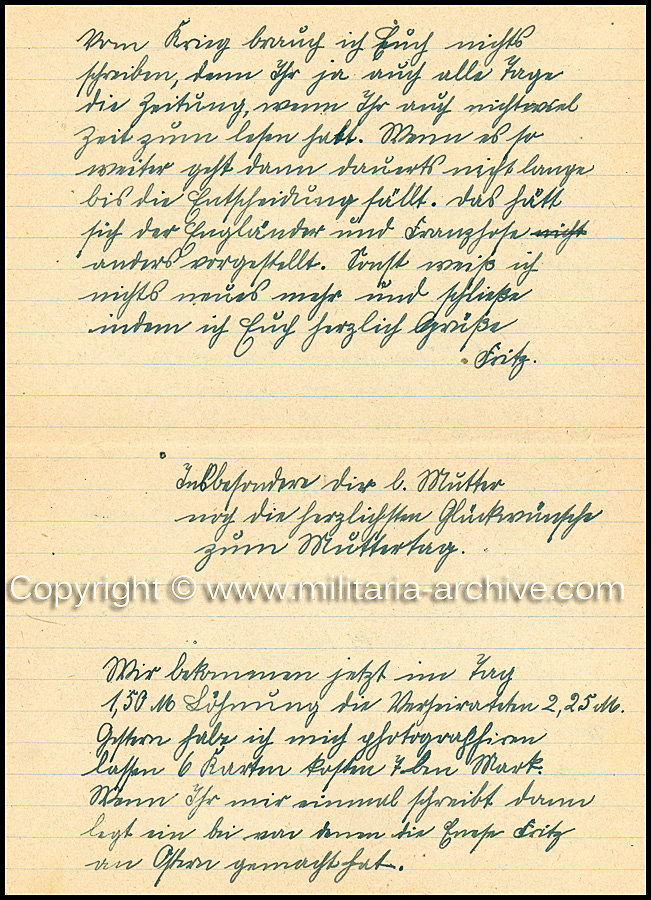 Vom Krieg brauch ich Euch nichts
schreiben, denn Ihr ja auch alle Tage
die Zeitung, wenn Ihr auch nicht viel
Zeit zum lesen habt. Wenn es so
weiter geht dann dauerts nicht lange
bis die Entscheidung fällt. Das hätt
sich der Engländer und Franzhose nicht
anders vorgestellt. Sonst weiß ich
nichts neues mehr und schließe
indem ich Euch herzlich Grüße
Fritz.
Insbesondere dir l. Mutter
noch die herzlichsten Glückwünsche
zum Muttertag.
Copyright © www.militaria-archive.com
Wir bekommen jetzt im Tag
1,50 M Löhnung die Verheirateten 2,25 M.
Gestern habe ich mich photographiren
lassen 6 Karten kosten Mark.
Wenn Ihr mir einmal schreibt dann
legt ein bei von denen die Fritz
an Ostern gemacht hat.